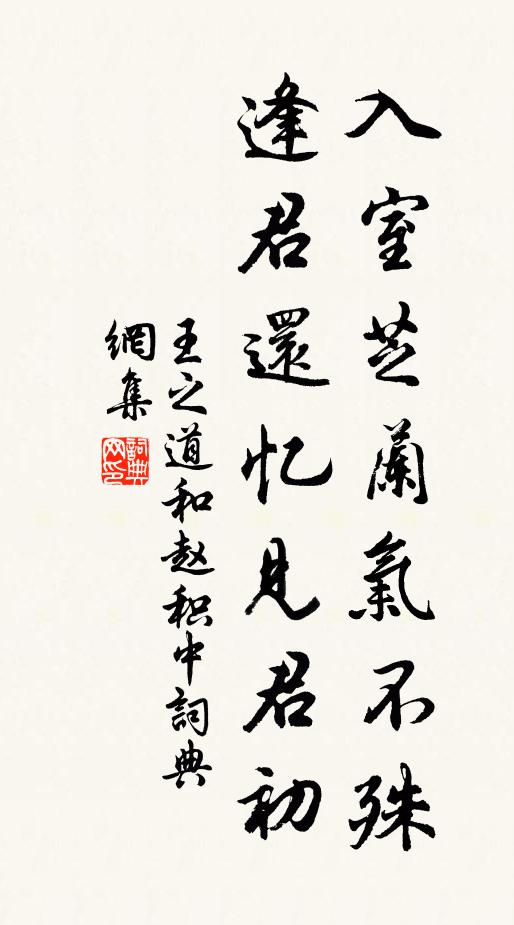 入室芝蘭氣不殊
逢君還忆見君初
王之道和赵积中詞典
網集
詞典
网印